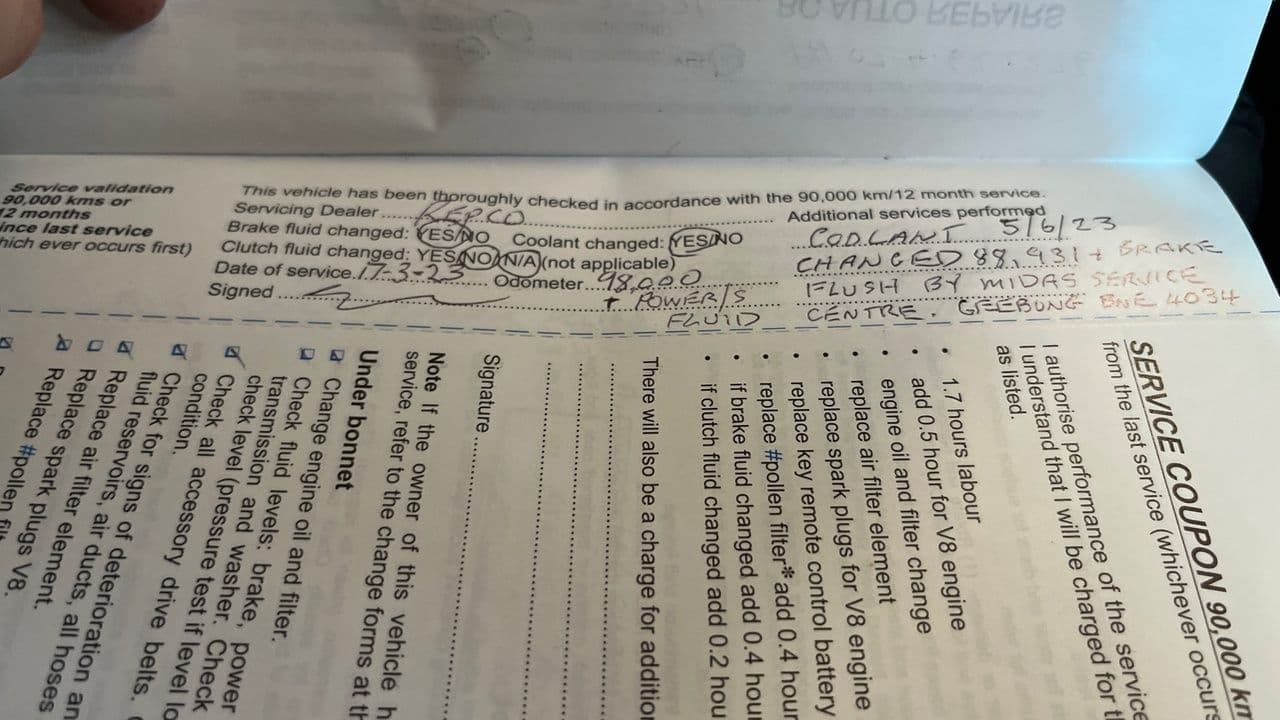 Service validation
90,000 kms or
12 months
since last service
which ever occurs first)
This vehicle has been thoroughly checked in accordance with the 90,000 km/12 month service.
Servicing Dealer ..... KEPCO
Brake fluid changed: YES/NO Coolant changed: YES/NO
Clutch fluid changed: YES/NO/N/A (not applicable)
Date of service. 17-3-23 Odometer... 98,000
Signed
+ POWER/S
FLUID
Additional services performed
COOLANT 5/6/23
CHANGED 88,931 + BRAKE
FLUSH BY MIDAS SERVICE
CENTRE. GEEBUNG BNE 4034
SERVICE COUPON 90,000 km
from the last service (whichever occurs
I authorise performance of the service
I understand that I will be charged for t
as listed.
• 1.7 hours labour
• add 0.5 hour for V8 engine
• engine oil and filter change
• replace air filter element
• replace spark plugs for V8 engine
• replace key remote control battery
• replace #pollen filter* add 0.4 hour
• if brake fluid changed add 0.4 hour
• if clutch fluid changed add 0.2 hou
There will also be a charge for addition
Signature
Note If the owner of this vehicle h
service, refer to the change forms at th
Under bonnet
Change engine oil and filter.
Check fluid levels: brake, power
transmission and washer. Check
Check level (pressure test if level lo
condition.
Check all accessory drive belts.
Check for signs of deterioration an
fluid reservoirs, air ducts, all hoses
Replace air filter element.
Replace spark plugs V8.
Replace #pollen filt
BO AUTO REPAIRS